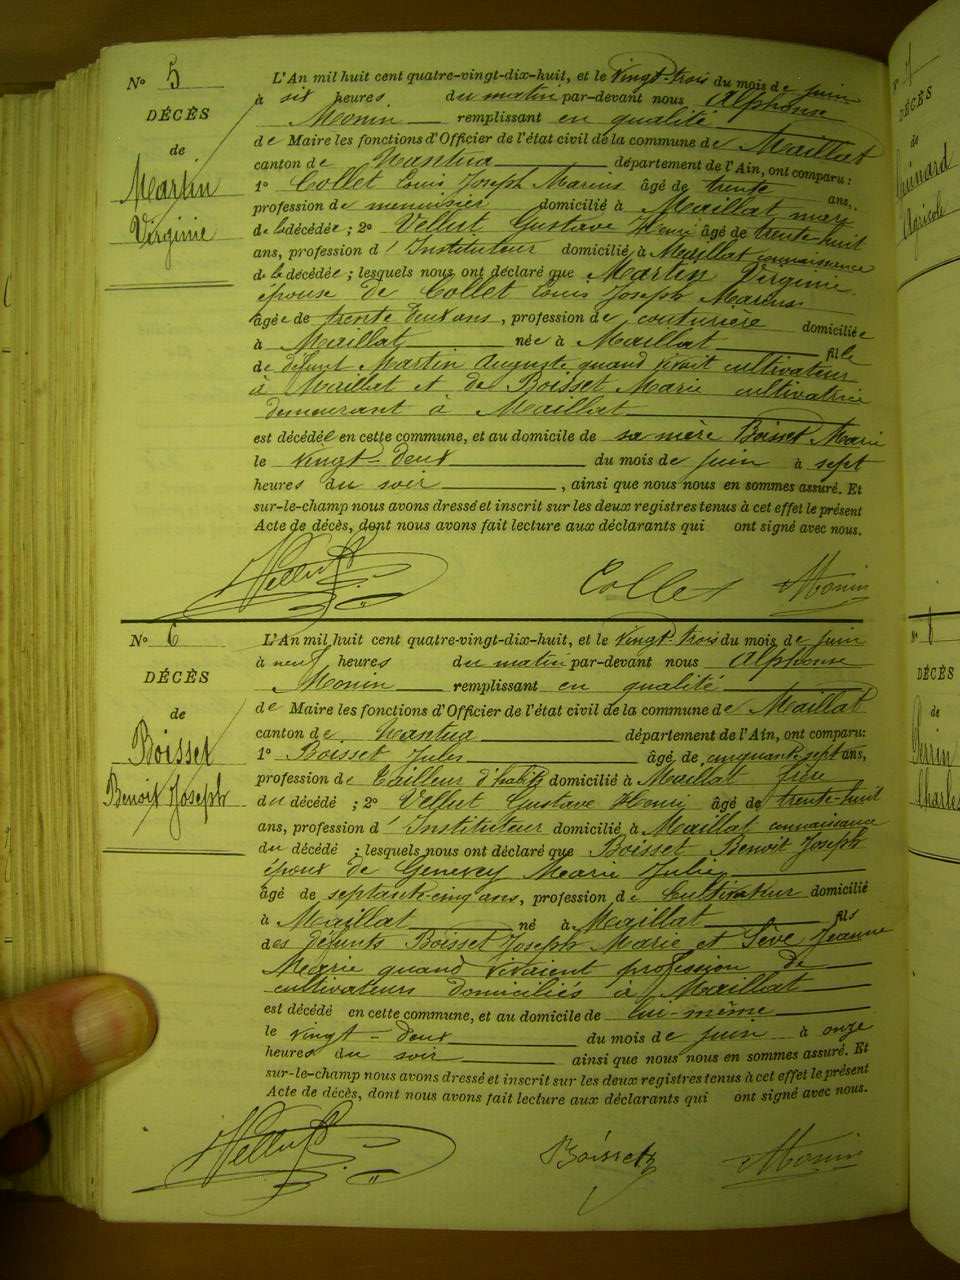 N° 5
DÉCÈS
de
Martin
Virginie
L'An mil huit cent quatre-vingt-dix-huit, et le vingt-trois du mois de juin
à six heures du matin par-devant nous Alphonse
Monin remplissant en qualité
de Maire les fonctions d'Officier de l'état civil de la commune de Maillat
canton de Nantua département de l'Ain, ont comparu:
1° Collet Louis Joseph Marius âgé de trente ans,
profession de menuisier domicilié à Maillat mary
de la décédée; 2° Vellut Gustave Henri âgé de trente-huit
ans, profession d'Instituteur domicilié à Maillat connaissance
de la décédée; lesquels nous ont déclaré que Martin Virginie
épouse de Collet Louis Joseph Marius
âgée de trente deux ans, profession de couturière domiciliée
à Maillat née à Maillat fille
de défunt Martin Auguste quand vivait cultivateur
à Maillat et de Boisset Marie cultivatrice
demeurant à Maillat
est décédée en cette commune, et au domicile de sa mère Boisset Marie
le vingt-deux du mois de juin à sept
heures du soir, ainsi que nous nous en sommes assuré. Et
sur-le-champ nous avons dressé et inscrit sur les deux registres tenus à cet effet le présent
Acte de décès, dont nous avons fait lecture aux déclarants qui ont signé avec nous.
Vellut Collet Monin
N° 6
DÉCÈS
de
Boisset
Benoit Joseph
L'An mil huit cent quatre-vingt-dix-huit, et le vingt-trois du mois de juin
à neuf heures du matin par-devant nous Alphonse
Monin remplissant en qualité
de Maire les fonctions d'Officier de l'état civil de la commune de Maillat
canton de Nantua département de l'Ain, ont comparu:
1° Boisset Jules âgé de cinquante sept ans,
profession de tailleur d'habits domicilié à Maillat
du décédé; 2° Vellut Gustave Henri âgé de trente-huit
ans, profession d'Instituteur domicilié à Maillat connaissance
du décédé; lesquels nous ont déclaré que Boisset Benoit Joseph
époux de Genevey Marie Julie
âgé de septante-cinq ans, profession de Cultivateur domicilié
à Maillat né à Maillat fils
des défunts Boisset Joseph Marie et Sève Jeanne
Marie quand vivaient profession de
cultivateurs domiciliés à Maillat
est décédé en cette commune, et au domicile de lui-même
le vingt-deux du mois de juin à onze
heures du soir ainsi que nous nous en sommes assuré. Et
sur-le-champ nous avons dressé et inscrit sur les deux registres tenus à cet effet le présent
Acte de décès, dont nous avons fait lecture aux déclarants qui ont signé avec nous.
Vellut Boisset Monin
N° 7
DÉCÈS
de
Agricole
N° 8
DÉCÈS
de
Perrin
Charles